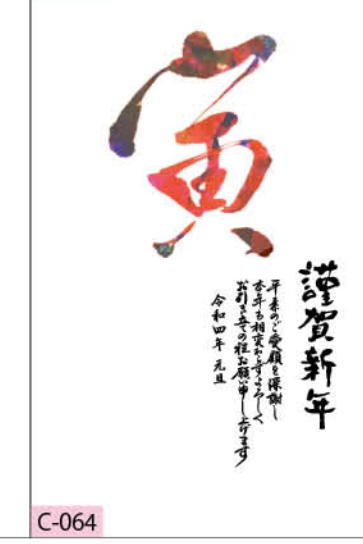 寅
謹賀新年
平素のご愛顧を深謝し
本年も相変わらずよろしく
お引き立ての程お願い申し上げます
令和四年 元旦
C-064